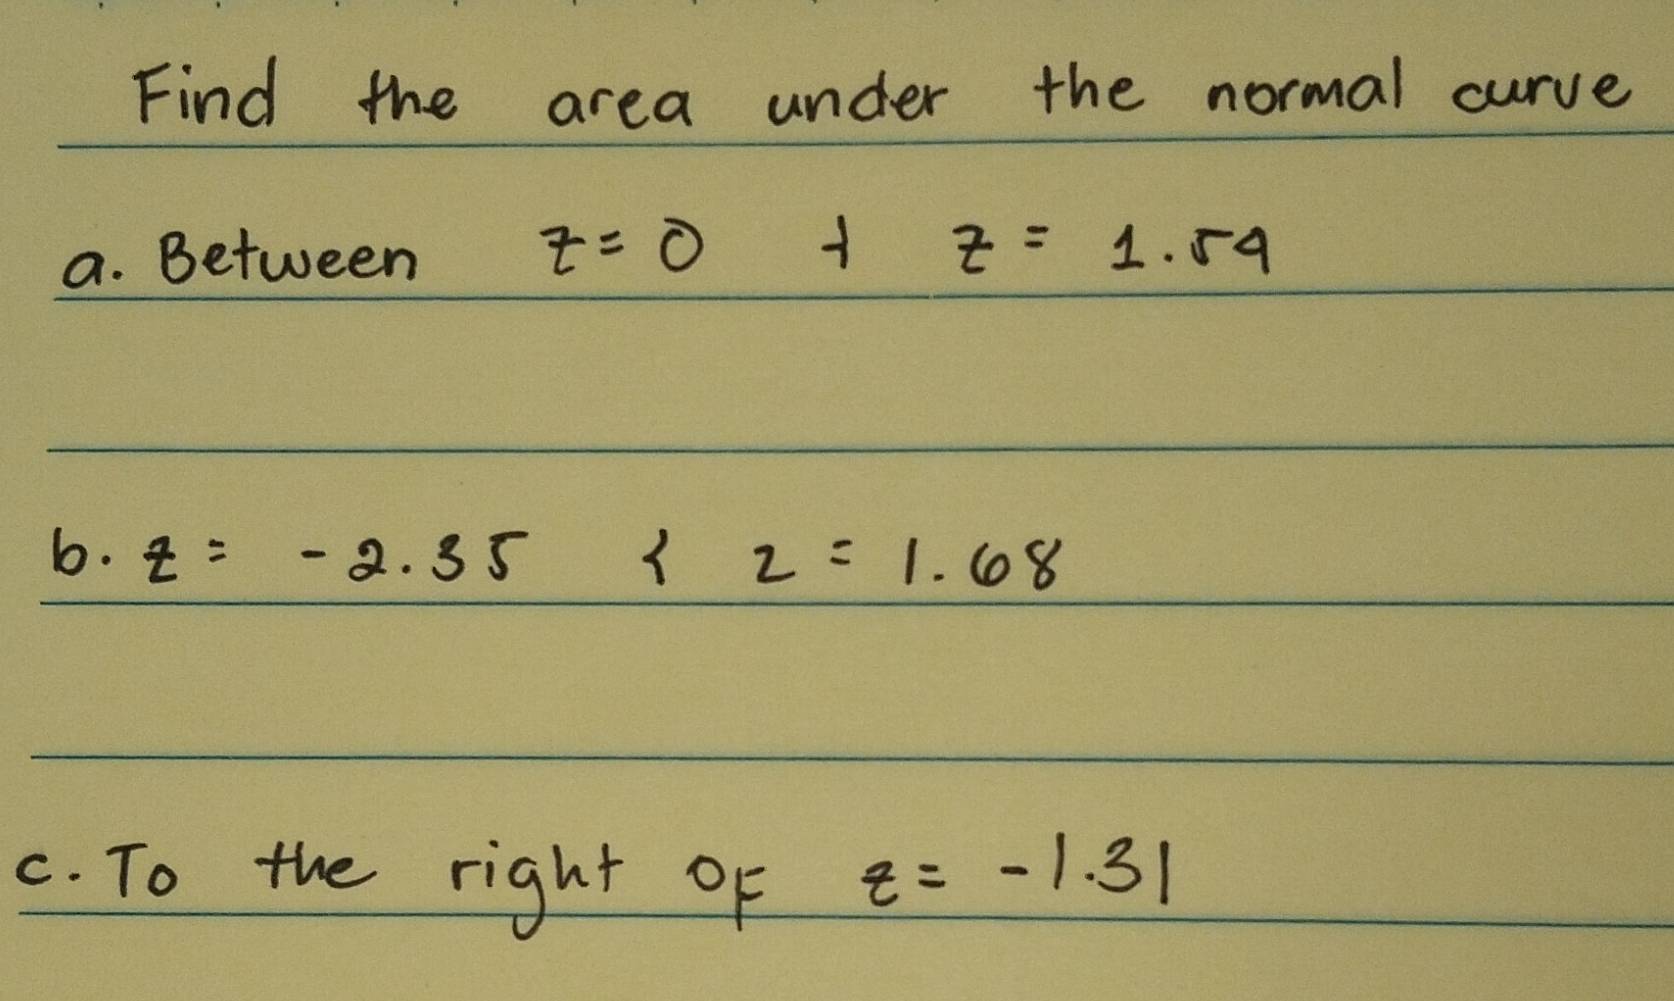 Find the area under the normal curve
a. Between z = 0 + z = 1.54
b. z = -2.35 & z = 1.68
c. To the right OF z = -1.31